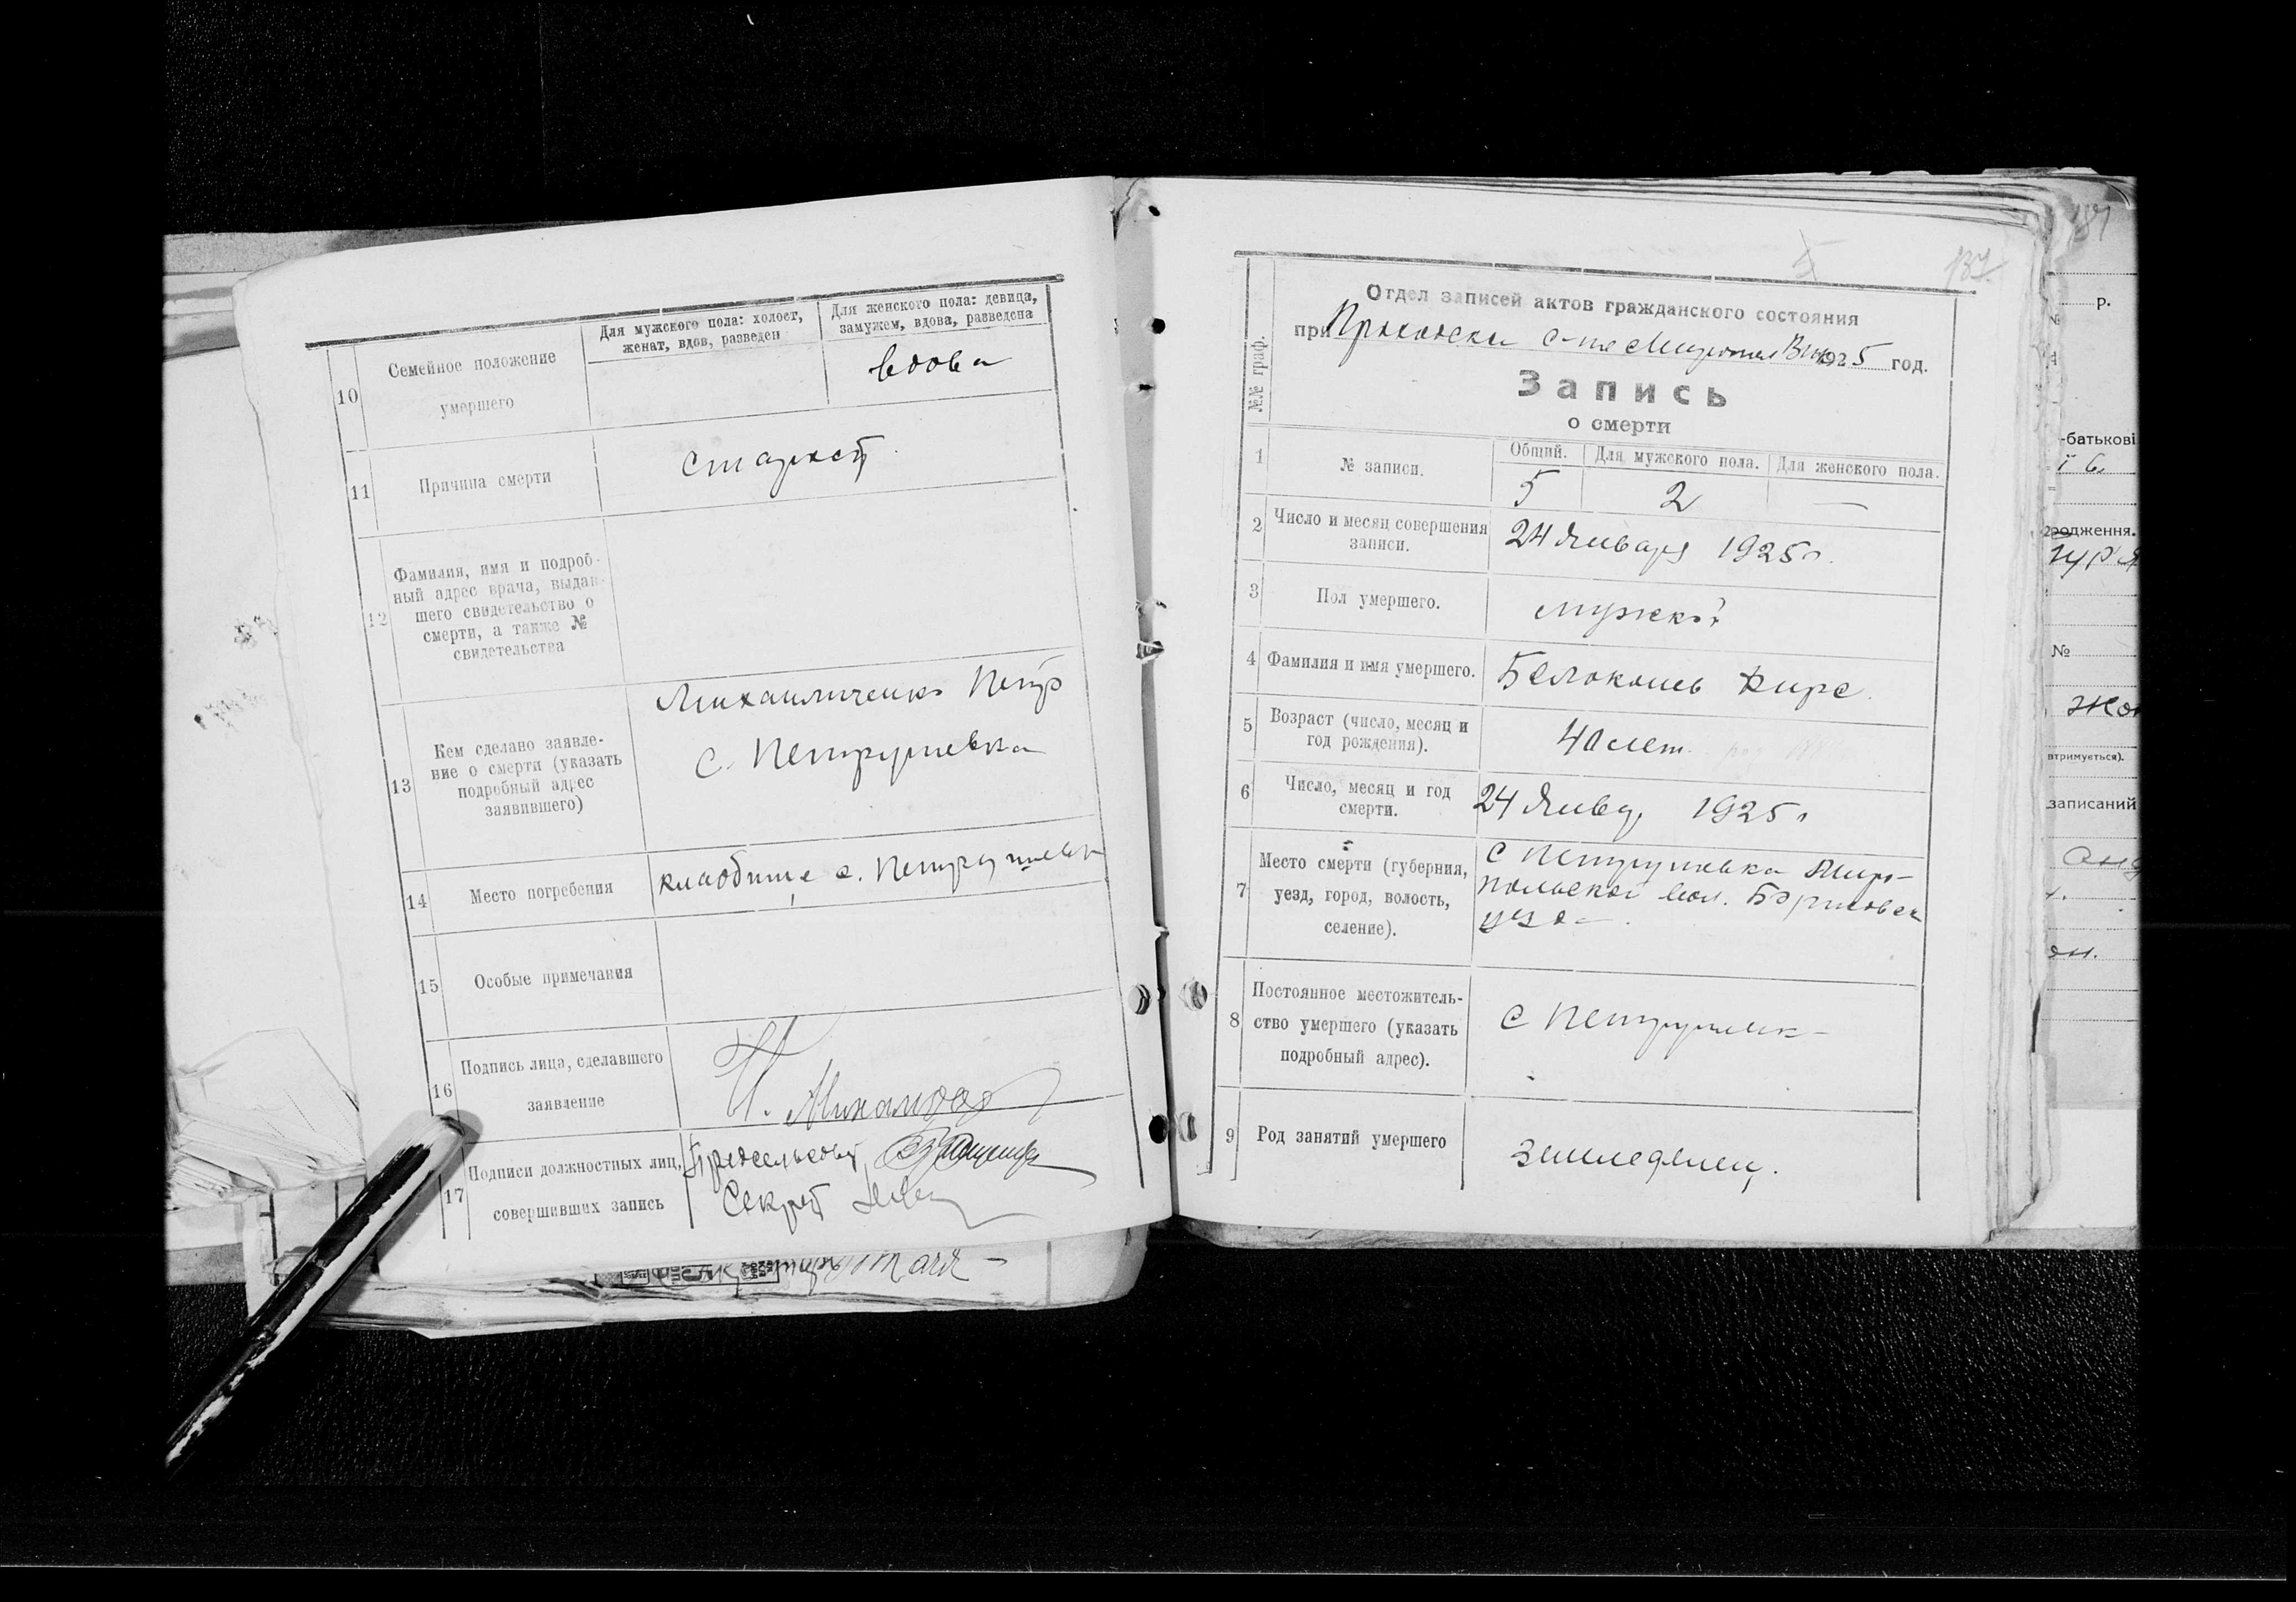 10
Семейное положение
умершего
Для мужского пола: холост,
женат, вдов, разведен
Для женского пола: девица,
замужем, вдова, разведена
вдова
11
Причина смерти
старост
12
Фамилия, имя и подроб-
ный адрес врача, выдав-
шего свидетельство о
смерти, а также №
свидетельства
13
Кем сделано заявле-
ние о смерти (указать
подробный адрес
заявившего)
Михайличенко Петр
с. Петрушевка
14
Место погребения
кладбище с. Петрушевк
15
Особые примечания
16
Подпись лица, сделавшего
заявление
17
Подписи должностных лиц,
совершивших запись
Предсельсовет
Секрет
137
№№ граф.
Отдел записей актов гражданского состояния
при 1925 год.
Запись
о смерти
1
№ записи.
Общий.
Для мужского пола.
Для женского пола.
5
2
—
2
Число и месяц совершения
записи.
24 Января 1925 г.
3
Пол умершего.
мужской
4
Фамилия и имя умершего.
Белоконь
5
Возраст (число, месяц и
год рождения).
40 лет
6
Число, месяц и год
смерти.
24 Январ 1925 г
7
Место смерти (губерния,
уезд, город, волость,
селение).
с Петрушевка Миро-
польской вол. Борисовск
уезд
8
Постоянное местожитель-
ство умершего (указать
подробный адрес).
с
9
Род занятий умершего
Земледелец.
р.
№
-батькові
родження.
№
втримується).
записаний